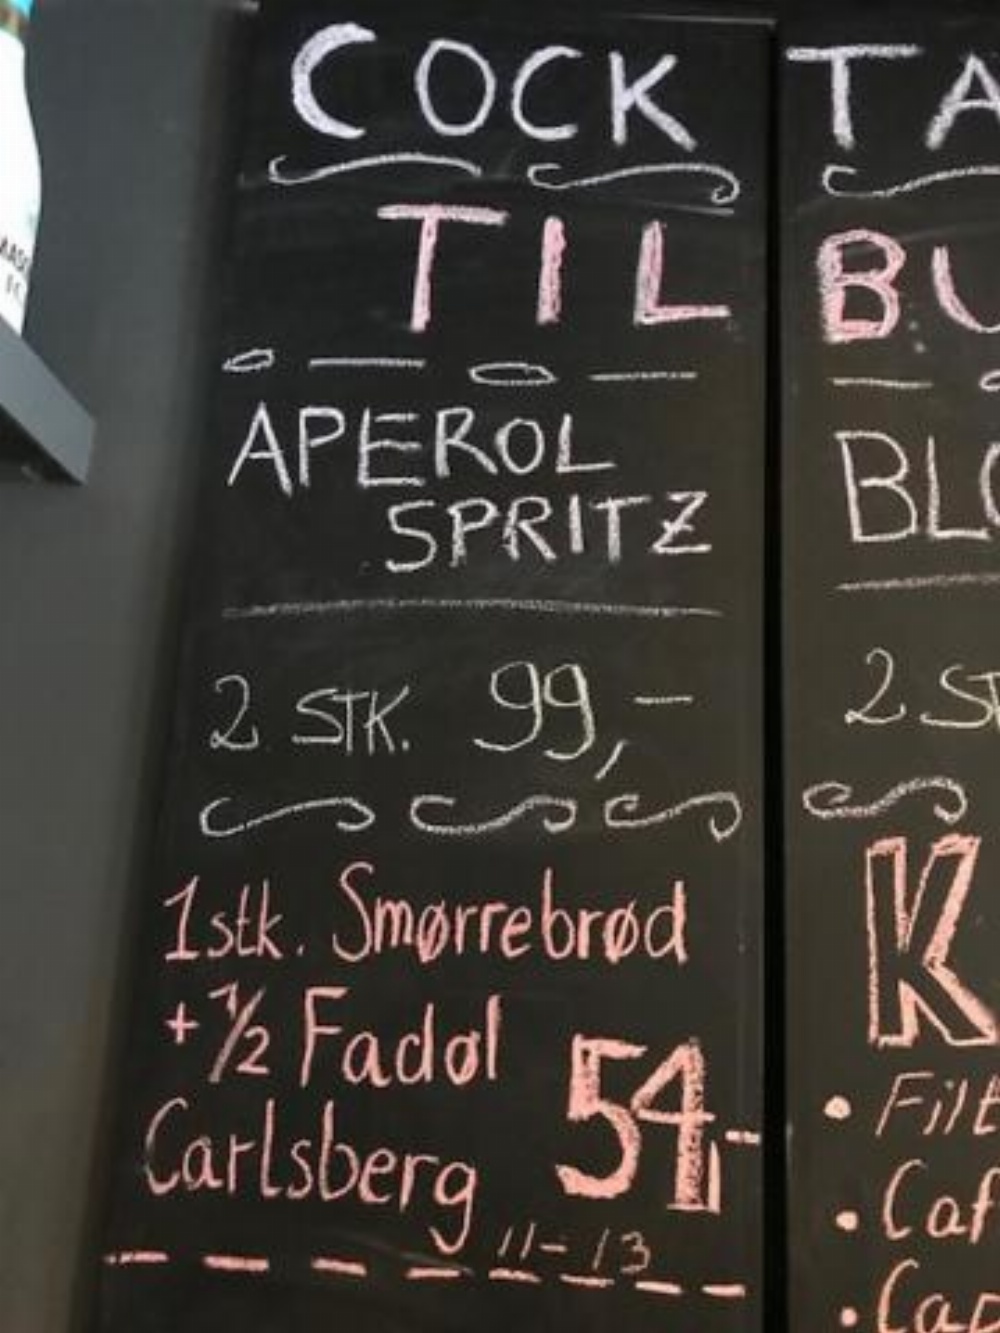 COCK
TIL
APEROL
SPRITZ
2 STK. 99,-
1stk. Smørrebrød
+ 1/2 Fadøl
Carlsberg 54,-
11-13
TA
BU
BLO
2 ST
K
• Filt
• Caf
• Cap